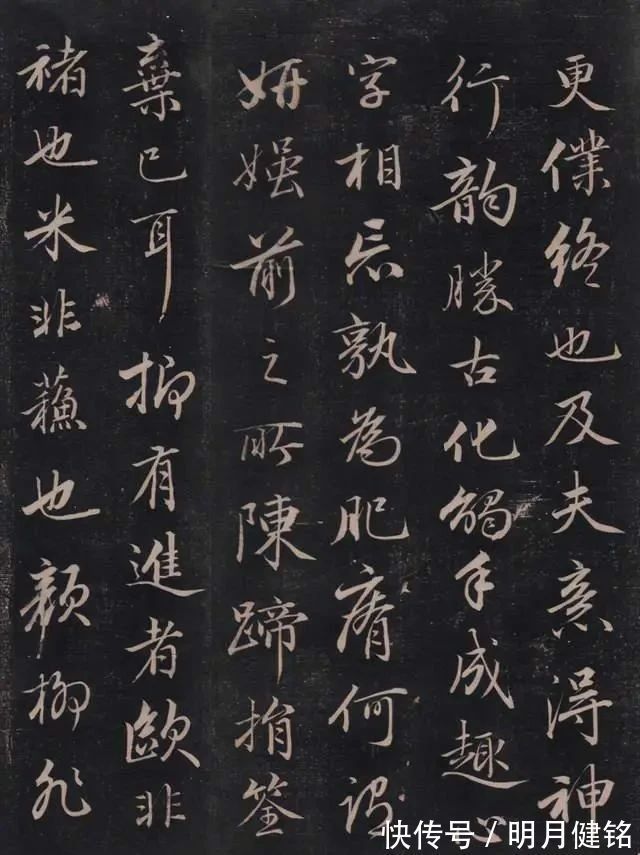 更僕終也及夫意得神
行韵勝古化觸手成趣心
字相忘孰為肥瘠何謂
妍媸前之所陳蹄捐筌
棄已耳抑有進者歐非
褚也米非蘇也顏柳非
快传号 / 明月健铭